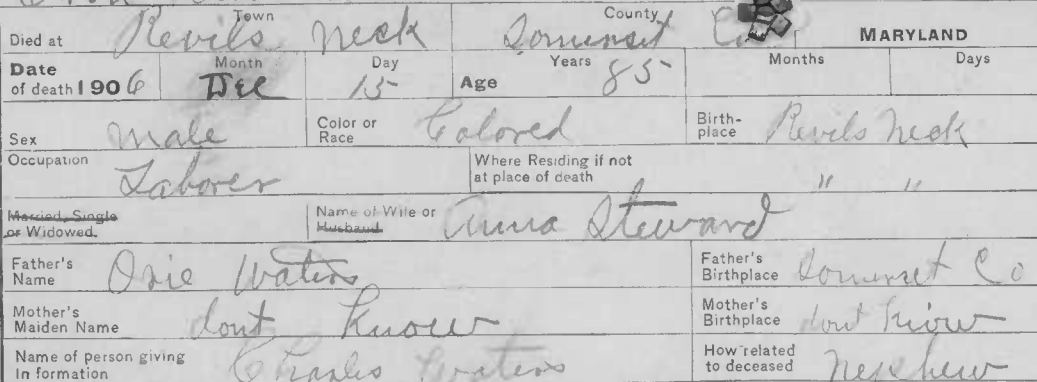 Town County
Died at Revils Neck Somerset Co MARYLAND
Date of death 1906 Month Dec Day 15 Age Years 85 Months Days
Sex male Color or Race Colored Birth-place Revils Neck
Occupation Laborer Where Residing if not at place of death " "
Married, Single or Widowed. Name of Wife or Husband Anna Steward
Father's Name Orie Waters Father's Birthplace Somerset Co
Mother's Maiden Name dont Know Mother's Birthplace dont Know
Name of person giving In formation Charles Waters How related to deceased Nephew